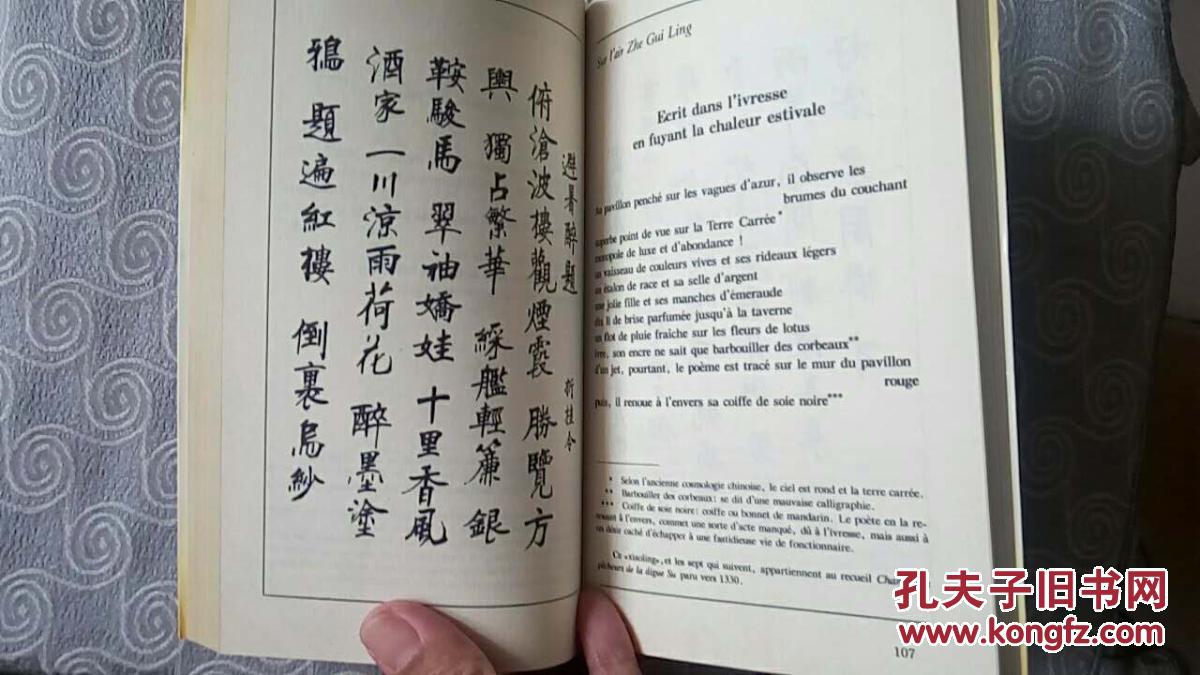 避暑醉題 折桂令
俯滄波樓觀煙霞 勝覽方
輿 獨占繁華 綵艦輕簾 銀
鞍駿馬 翠袖嬌娃 十里香風
酒家 一川涼雨荷花 醉墨塗
鴉 題遍紅樓 倒裏烏紗
Sur l'air Zhe Gui Ling
Ecrit dans l'ivresse
en fuyant la chaleur estivale
pavillon penché sur les vagues d'azur, il observe les
brumes du couchant
superbe point de vue sur la Terre Carrée*
métropole de luxe et d'abondance !
un vaisseau de couleurs vives et ses rideaux légers
un étalon de race et sa selle d'argent
une jolie fille et ses manches d'émeraude
dix li de brise parfumée jusqu'à la taverne
un flot de pluie fraîche sur les fleurs de lotus
ivre, son encre ne sait que barbouiller des corbeaux**
d'un jet, pourtant, le poème est tracé sur le mur du pavillon
rouge
puis, il renoue à l'envers sa coiffe de soie noire***
* Selon l'ancienne cosmologie chinoise, le ciel est rond et la terre carrée.
** Barbouiller des corbeaux : se dit d'une mauvaise calligraphie.
*** Coiffe de soie noire : coiffe ou bonnet de mandarin. Le poète en la re-
nouant à l'envers, commet une sorte d'acte manqué, dû à l'ivresse, mais aussi à
un désir caché d'échapper à une fastidieuse vie de fonctionnaire.
Ce «xiaoling», et les sept qui suivent, appartiennent au recueil
pêcheurs de la digue Su paru vers 1330.
107
孔夫子旧书网
www.kongfz.com